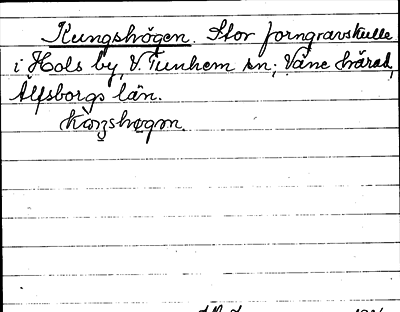 Kungshögen. Stor forngravskulle
i Hols by, V. Tunhem sn; Väne härad,
Älfsborgs län.